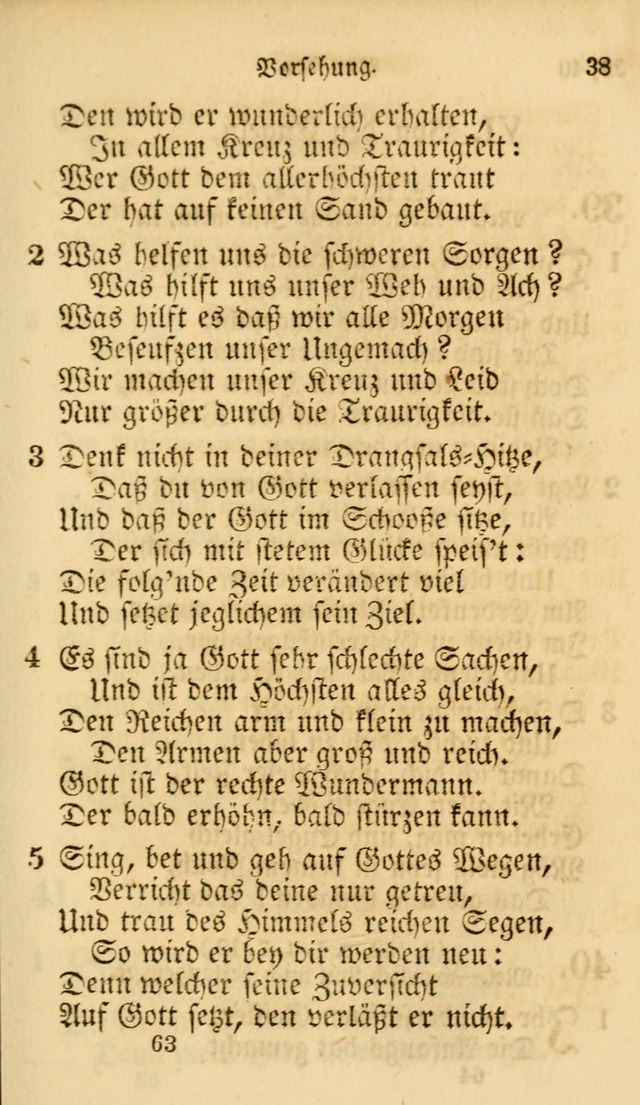 Vorsehung. 38
Den wird er wunderlich erhalten,
In allem Kreuz und Traurigkeit:
Wer Gott dem allerhöchsten traut
Der hat auf keinen Sand gebaut.
2 Was helfen uns die schweren Sorgen?
Was hilft uns unser Weh und Ach?
Was hilft es daß wir alle Morgen
Beseufzen unser Ungemach?
Wir machen unser Kreuz und Leid
Nur größer durch die Traurigkeit.
3 Denk nicht in deiner Drangsals-Hitze,
Daß du von Gott verlassen seyst,
Und daß der Gott im Schooße sitze,
Der sich mit stetem Glücke speis't:
Die folg'nde Zeit verändert viel
Und setzet jeglichem sein Ziel.
4 Es sind ja Gott sehr schlechte Sachen,
Und ist dem Höchsten alles gleich,
Den Reichen arm und klein zu machen,
Den Armen aber groß und reich.
Gott ist der rechte Wundermann.
Der bald erhöhn, bald stürzen kann.
5 Sing, bet und geh auf Gottes Wegen,
Verricht das deine nur getreu,
Und trau des Himmels reichen Segen,
So wird er bey dir werden neu:
Denn welcher seine Zuversicht
Auf Gott setzt, den verläßt er nicht.
63